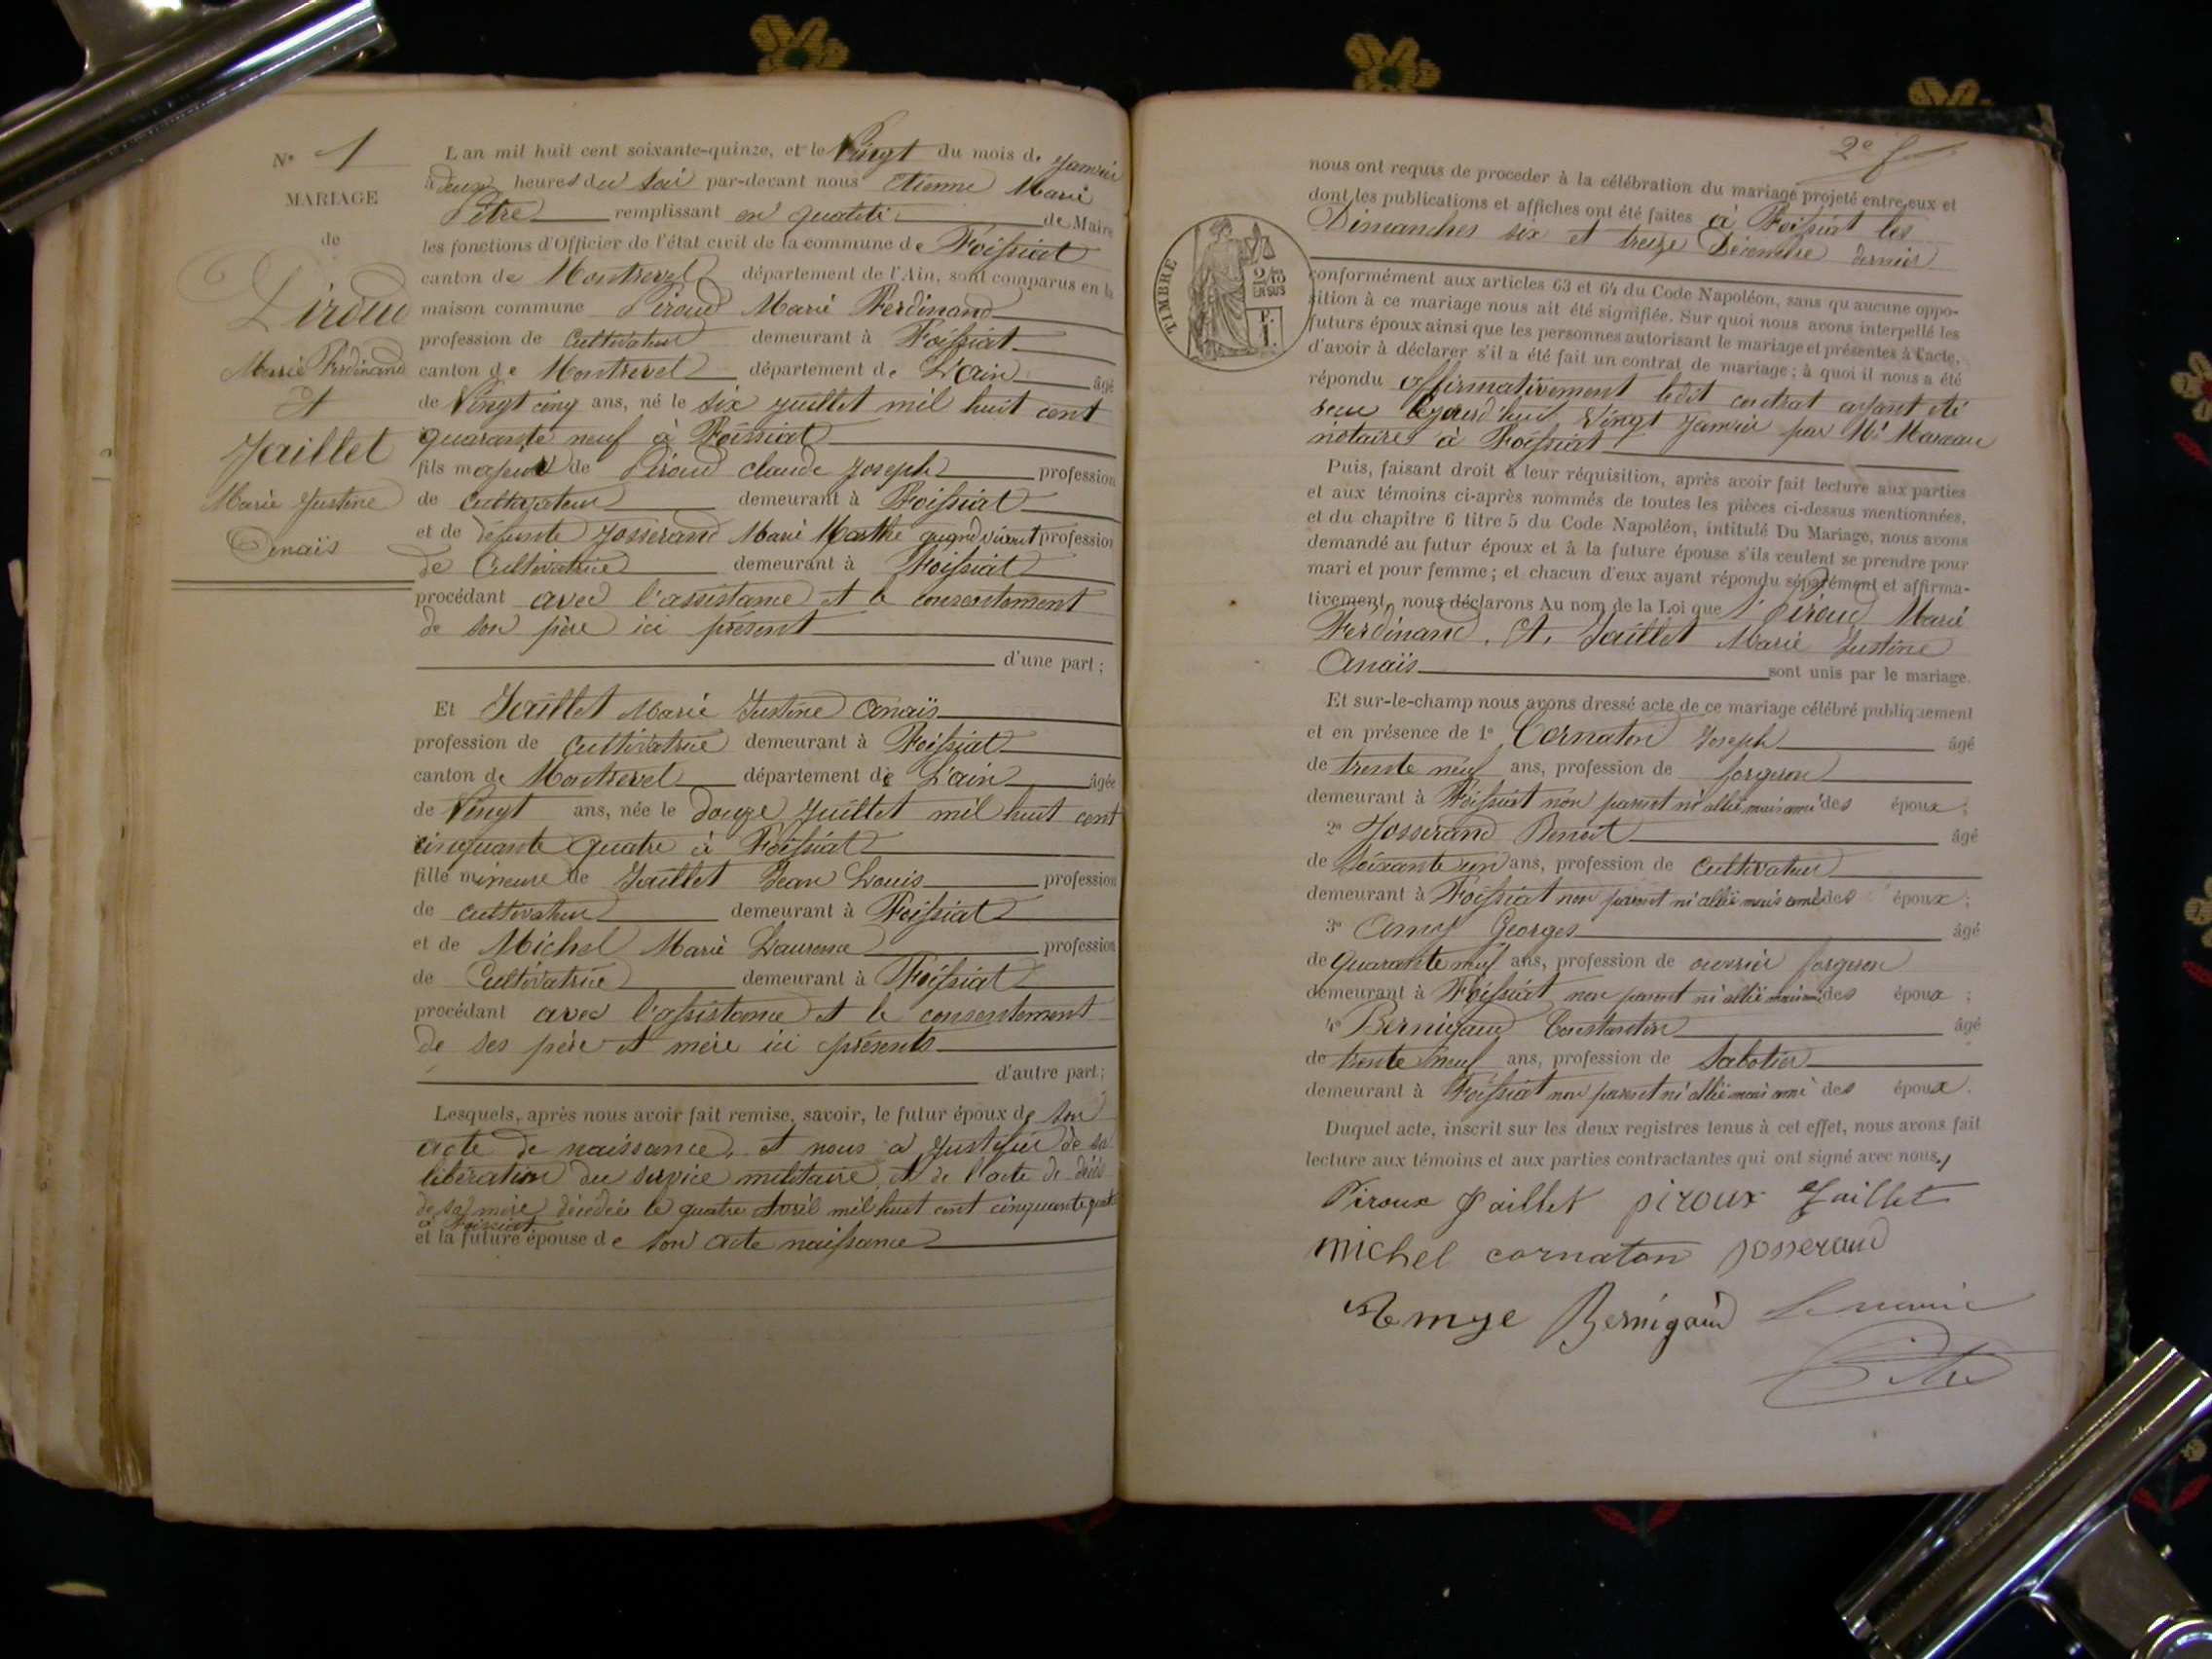 N° 1
MARIAGE
de
Piroud
Marie Ferdinand
Et
Jaillet
Marie Justine
Anaïs
L'an mil huit cent soixante-quinze, et le Vingt du mois de Janvier
à deux heures du soir par-devant nous Etienne Marie
Pitre remplissant en qualité de Maire
les fonctions d'Officier de l'état civil de la commune de Foissiat
canton de Montrevel département de l'Ain, sont comparus en la
maison commune Piroud Marie Ferdinand
profession de Cultivateur demeurant à Foissiat
canton de Montrevel département de L'ain âgé
de Vingt cinq ans, né le six juillet mil huit cent
quarante neuf à Foissiat
fils majeur de Piroud claude Joseph profession
de Cultivateur demeurant à Foissiat
et de défunte Josserand Marie Marthe quand vivait profession
de Cultivatrice demeurant à Foissiat
procédant avec l'assistance et le consentement
de son père ici présent
d'une part ;
Et Jaillet Marie Justine Anaïs
profession de Cultivatrice demeurant à Foissiat
canton de Montrevel département de L'ain âgée
de Vingt ans, née le douze Juillet mil huit cent
cinquante quatre à Foissiat
fille mineure de Jaillet Jean Louis profession
de cultivateur demeurant à Foissiat
et de Michel Marie Laurence profession
de Cultivatrice demeurant à Foissiat
procédant avec l'assistance et le consentement
de ses père et mère ici présents
d'autre part ;
Lesquels, après nous avoir fait remise, savoir, le futur époux de son
acte de naissance, et nous a justifié de sa
libération du service militaire, et de l'acte de décès
de sa mère décédée le quatre Avril mil huit cent cinquante quatre
à Foissiat
et la future épouse de son acte naissance
2e f
nous ont requis de proceder à la célébration du mariage projeté entre eux et
dont les publications et affiches ont été faites à Foissiat les
Dimanches six et treize Décembre dernier
TIMBRE
2/10
EN SUS
F.
1.
conformément aux articles 63 et 64 du Code Napoléon, sans qu'aucune oppo-
sition à ce mariage nous ait été signifiée. Sur quoi nous avons interpellé les
futurs époux ainsi que les personnes autorisant le mariage et présentes à l'acte,
d'avoir à déclarer s'il a été fait un contrat de mariage ; à quoi il nous a été
répondu affirmativement ledit contrat ayant été
reçu aujourd'hui vingt Janvier par Me
notaire à Foissiat
Puis, faisant droit à leur réquisition, après avoir fait lecture aux parties
et aux témoins ci-après nommés de toutes les pièces ci-dessus mentionnées,
et du chapitre 6 titre 5 du Code Napoléon, intitulé Du Mariage, nous avons
demandé au futur époux et à la future épouse s'ils veulent se prendre pour
mari et pour femme ; et chacun d'eux ayant répondu séparément et affirma-
tivement, nous déclarons Au nom de la Loi que Piroud Marie
Ferdinand, Et, Jaillet Marie Justine
Anaïs sont unis par le mariage.
Et sur-le-champ nous avons dressé acte de ce mariage célébré publiquement
et en présence de 1° Cornaton Joseph âgé
de trente neuf ans, profession de forgeron
demeurant à Foissiat non parent ni allié mais ami des époux ;
2° Josserand Benoit âgé
de Soixante un ans, profession de Cultivateur
demeurant à Foissiat non parent ni allié mais ami des époux ;
3° Amy Georges âgé
de quarante neuf ans, profession de ouvrier forgeron
demeurant à Foissiat non parent ni allié mais ami des époux ;
4° Bernigaud Constantin âgé
de trente neuf ans, profession de Sabotier
demeurant à Foissiat non parent ni allié mais ami des époux.
Duquel acte, inscrit sur les deux registres tenus à cet effet, nous avons fait
lecture aux témoins et aux parties contractantes qui ont signé avec nous.
Piroux Jaillet piroux Jaillet
michel cornaton josserand
Bernigaud Le maire
Pitre